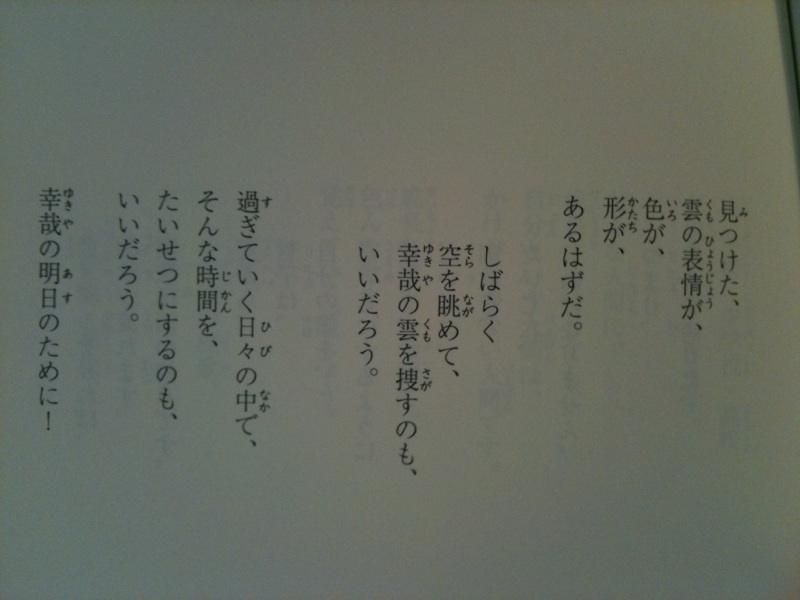 見つけた、
雲の表情が、
色が、
形が、
あるはずだ。
しばらく
空を眺めて、
幸哉の雲を捜すのも、
いいだろう。
過ぎていく日々の中で、
そんな時間を、
たいせつにするのも、
いいだろう。
幸哉の明日のために！